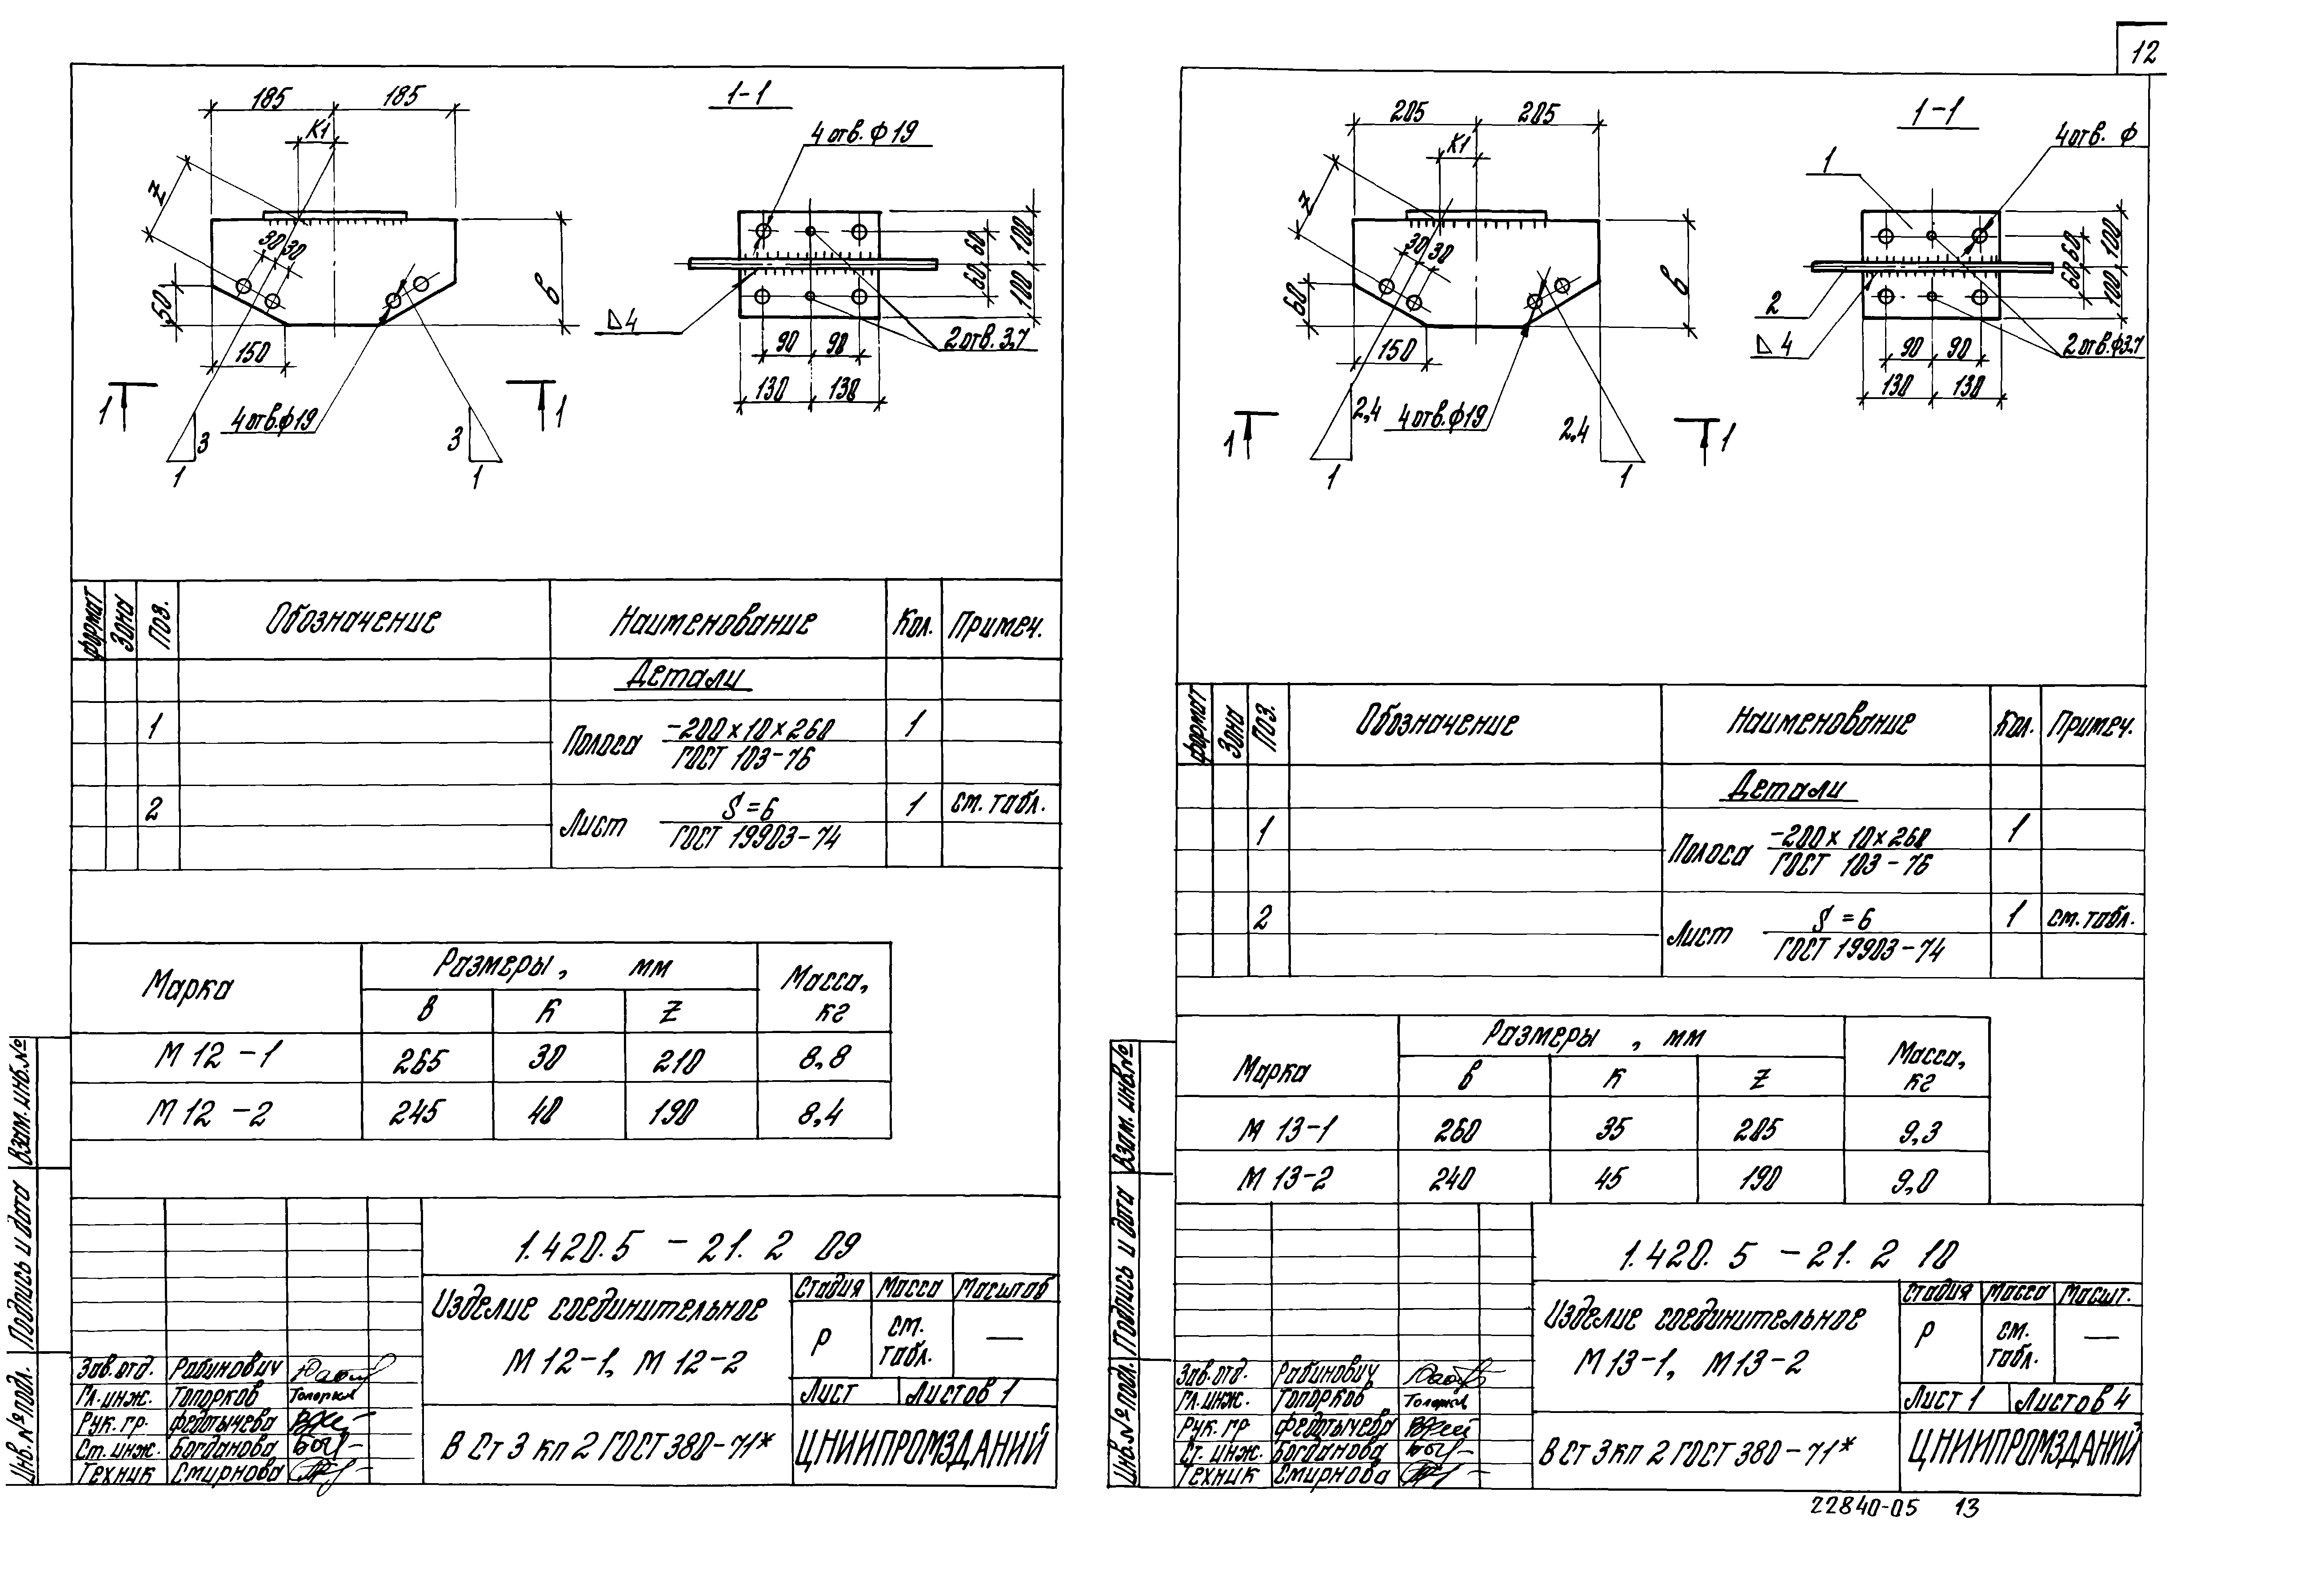 12
185 185
К1
z
30 30
50
150
в
4 отв. ф19
3
1
3
1
1 1
1-1
4 отв. ф 19
60 100
60 100
4
2 отв. 3,7
90 90
130 130
формат Зона Поз. Обозначение Наименование Кол. Примеч.
Детали
1 Полоса -200×10×260 1
ГОСТ 103-76
2 Лист S=6 1 см. табл.
ГОСТ 19903-74
Марка Размеры, мм Масса, кг
в К z
М 12 -1 265 30 210 8,8
М 12 -2 245 40 190 8,4
1.420.5 -21.2 09
Изделие соединительное
М 12-1, М 12-2
Стадия Масса Масштаб
Р см. табл. —
Лист Листов 1
В Ст 3 кп 2 ГОСТ 380-71*
ЦНИИПРОМЗДАНИЙ
Зав. отд. Рабинович
Гл. инж. Топорков Топорков
Рук. гр. Федтычева
Ст. инж. Богданова
Техник Смирнова
Инв. № подл. Подпись и дата Взам. инв. №
205 205
К1
z
30 30
60
150
в
4 отв. ф19
2,4
1
2,4
1
1 1
1-1
4 отв. ф
1
60 100
60 100
2
4
2 отв. ф3,7
90 90
130 130
формат Зона Поз. Обозначение Наименование Кол. Примеч.
Детали
1 Полоса -200× 10×260 1
ГОСТ 103-76
2 Лист S=6 1 см. табл.
ГОСТ 19903-74
Марка Размеры, мм Масса, кг
в К z
М 13-1 260 35 205 9,3
М 13-2 240 45 190 9,0
1.420.5 -21.2 10
Изделие соединительное
М 13-1, М13-2
Стадия Масса Масшт.
Р см. табл. —
Лист 1 Листов 4
В Ст 3 кп 2 ГОСТ 380-71*
ЦНИИПРОМЗДАНИЙ
Зав. отд. Рабинович
Гл. инж. Топорков Топорков
Рук. гр Федтычева
Ст. инж. Богданова
Техник Смирнова
Инв. № подл. Подпись и дата Взам. инв. №
22840-05 13